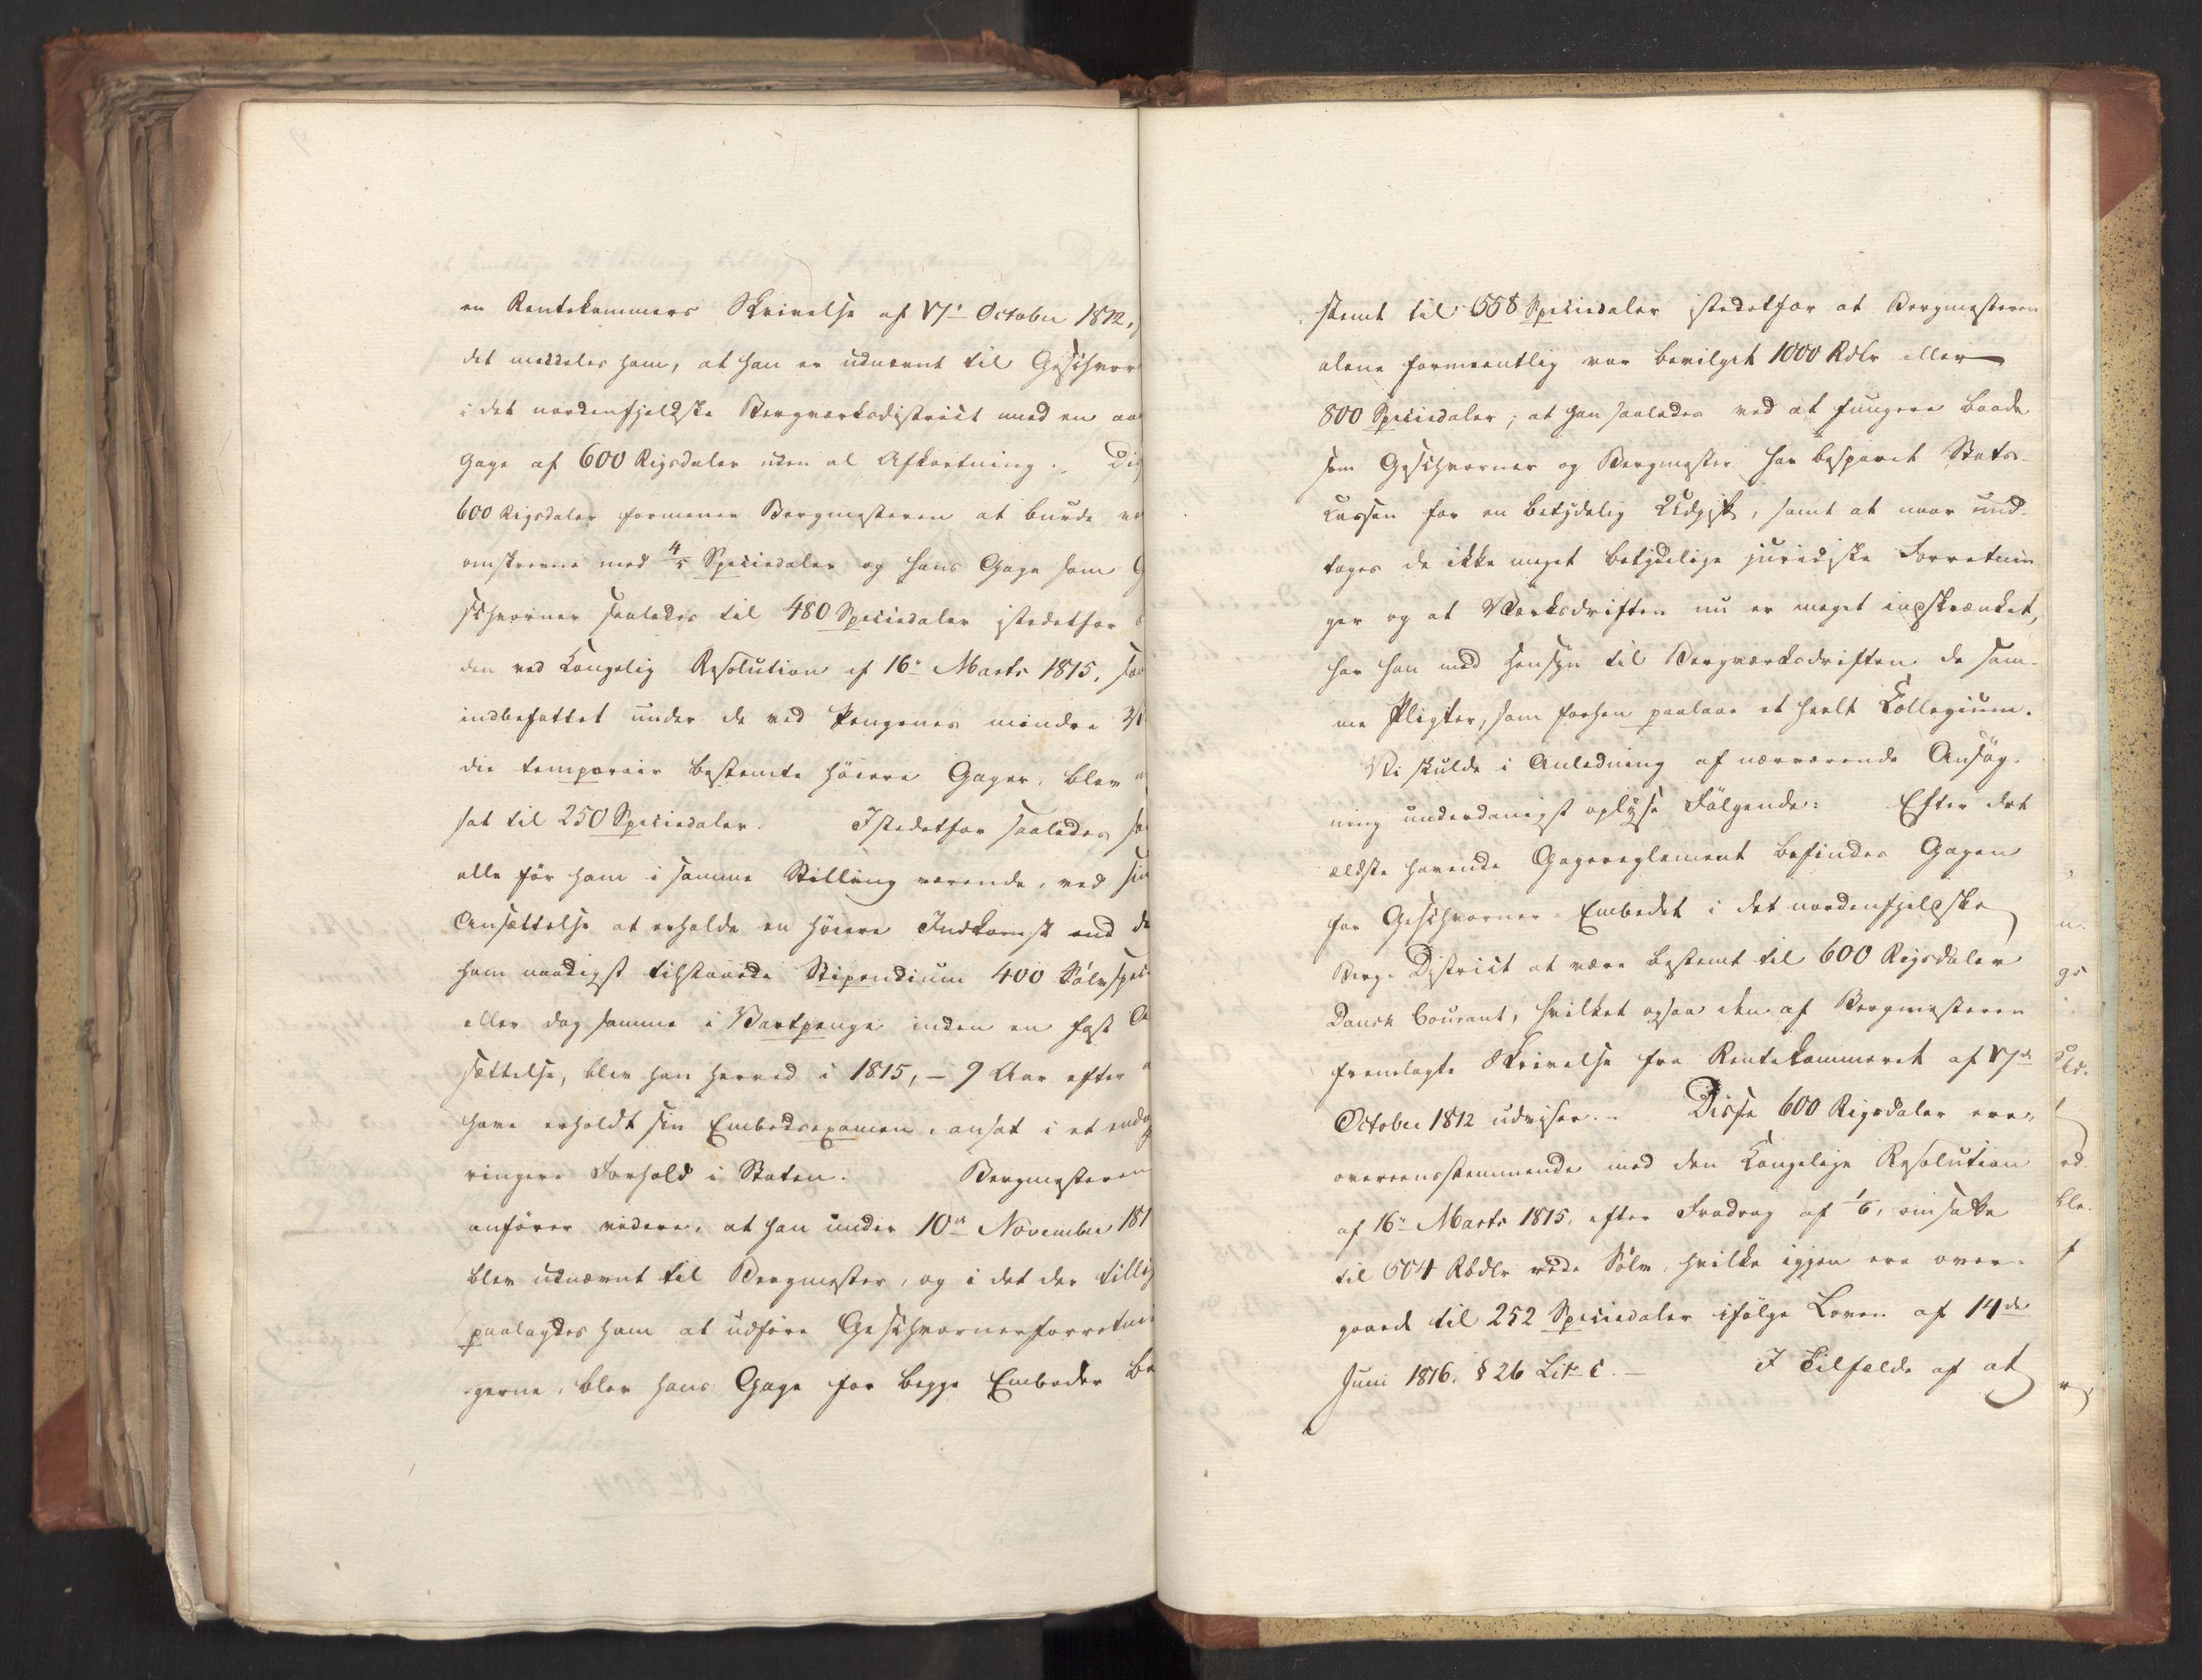 en Rentekammers Skrivelse af 17' October 1812,
det meddeles ham, at han er udnævnt til Geschvor
i det nordenfjeldske Bergværksdistrict med en aa
Gage af 600 Rigsdaler uden al Afkortning. Diß
600 Rigsdaler formener Bergmesteren at burde
omskrevne med 4/5 Speciedaler og hans Gage som G
schvorner saaledes til 480 Speciedaler istedetfor
den ved Kongelig Resolution af 16' Marts 1815,
indbefattet under de ved Pengenes mindre
die temporair bestemte höiere Gager, blev
sat til 250 Speciedaler. Istedetfor saaledes
alle för ham i samme Stilling værende, ved
Ansættelse at erholde en höiere Indkomst end
ham naadigst tilstaaede Stipendium 400 Sölvspe
eller dog samme i Vartpenge inden en fast
sættelse, blev han herved i 1815, – 9 Aar efter
have erholdt sin Embedsexamen, ansat i et
ringere Forhold i Staten. Bergmesteren
anförer videre, at han under 10de November 181
blev udnævnt til Bergmester, og i det der tillig
paalagdes ham at udföre Geschvornerforretni
gerne, blev hans Gage for begge Embeder be
stemt til 558 Speciedaler istedetfor at Bergmesteren
alene formeentlig var bevilget 1000 Rdlr eller
800 Speciedaler; at han saaledes ved at fungere baade
som Geschvorner og Bergmester har besparet Stats-
Kassen for en betydelig Udgift, samt at naar und-
tages de ikke meget betydelige juridiske Forretnin
ger og at Værksdriften nu er meget indskrænket,
har han med Hensyn til Bergværksdriften de sam-
me Pligter, som forhen paalaae et heelt Collegium.
Vi skulde i Anledning af nærværende Ansøg-
ning underdanigst oplyse Fölgende: Efter det
ældste havende Gagereglement befindes Gagen
for Geschvorner-Embedet i det nordenfjeldske
Berg-District at være bestemt til 600 Rigsdaler
Dansk Courant, hvilket ogsaa den af Bergmesteren
fremlagte Skrivelse fra Rentekammeret af 17de
October 1812 udviser. Disse 600 Rigsdaler ere,
overeensstemmende med den Kongelige Resolution
af 16' Marts 1815, efter Fradrag af 1/6, omsatte
til 504 Rbdlr rede Sölv, hvilke igjen ere over-
gaaede til 252 Speciedaler ifölge Loven af 14de
Juni 1816. § 26 Litr c. – I Tilfælde af at